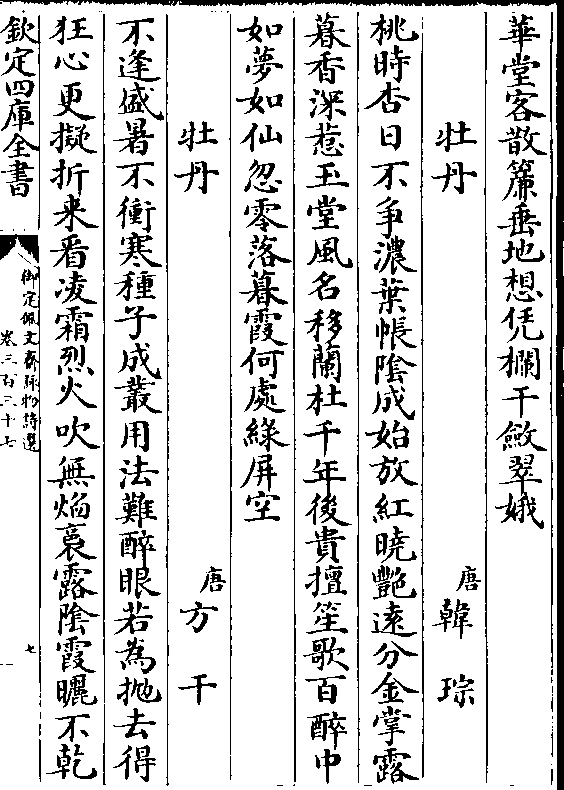 華堂客散簾垂地想凭欄干斂翠娥
牡丹
唐韓琮
桃時杏日不爭濃葉帳陰成始放紅曉艷遠分金掌露
暮香深惹玉堂風名移蘭杜千年後貴擅笙歌百醉中
如夢如仙忽零落暮霞何處綠屏空
牡丹
唐方干
不逢盛暑不衝寒種子成叢用法難醉眼若為抛去得
狂心更擬折來看凌霜烈火吹無焰裛露陰霞曬不乾
欽定四庫全書
御定佩文齋詠物詩選
卷三百三十七
七